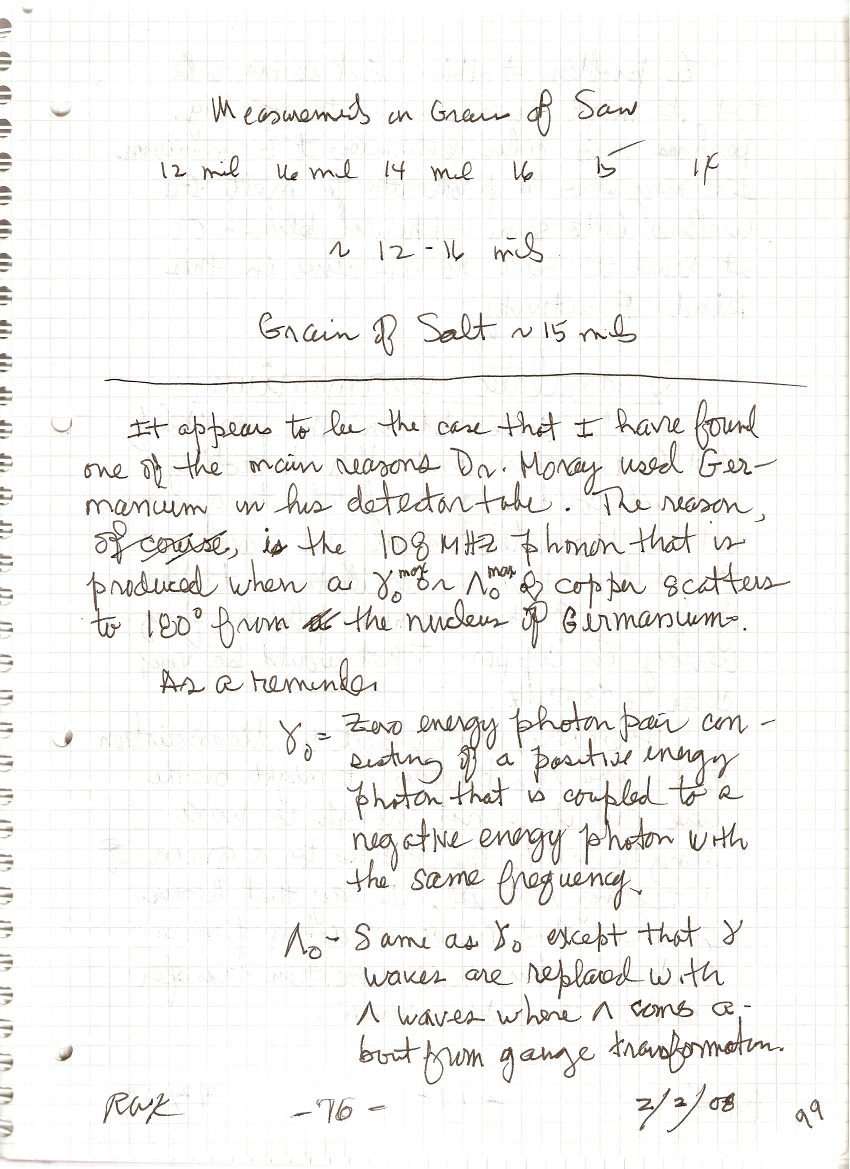 Measurements on Grain of San
12 mil 16 mil 14 mil 16 15 14
~ 12-16 mils
Grain of Salt ~ 15 mils
It appears to be the case that I have found
one of the main reasons Dr. Moray used Ger-
manium in his detector tube. The reason,
of course, is the 108 MHz phonon that is
produced when a γ₀ᵐᵃˣ or Λ₀ᵐᵃˣ of copper scatters
to 180° from the nucleus of Germanium.
As a reminder
γ₀ = Zero energy photon pair con-
sisting of a positive energy
photon that is coupled to a
negative energy photon with
the same frequency.
Λ₀ - Same as γ₀ except that γ
waves are replaced with
Λ waves where Λ coms a-
bout from gauge transformation.
RWK -76- 2/2/08 99